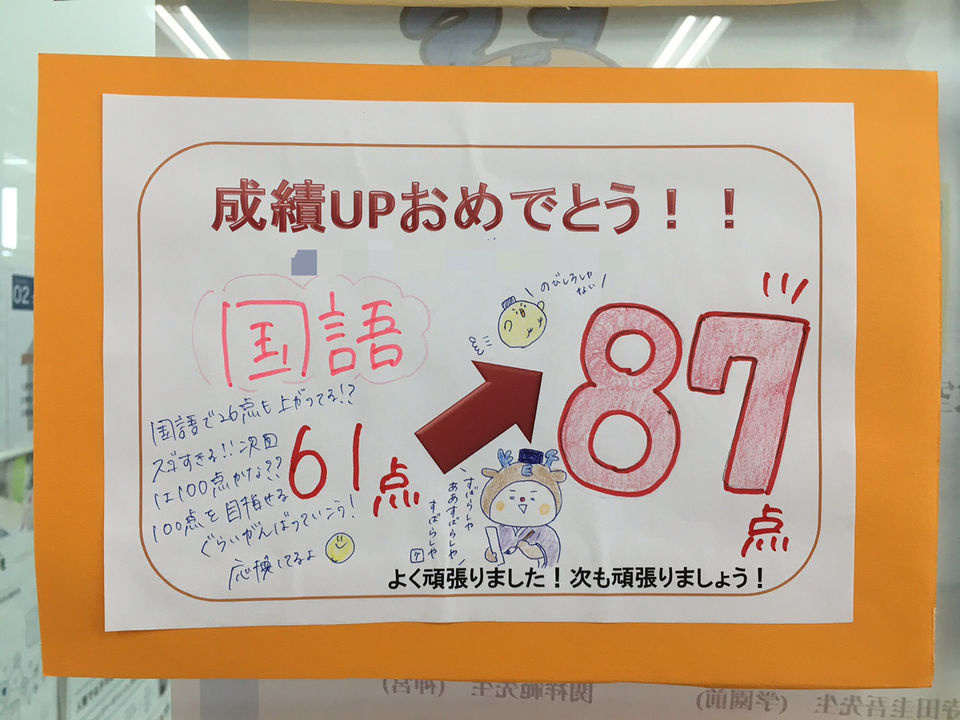 成績UPおめでとう！！
国語
のびしろしか
ない！
87
点
61点
国語で26点も上がってる!?
スゴすぎる!!次回
は100点かな??
100点を目指せる
ぐらいがんばっていこう!
応援してるよ
すばらしや
ああすばらしや
すばらしや
よく頑張りました！次も頑張りましょう！
02
関祥範先生 (神宮)
寺田圭吾先生 (学園前)